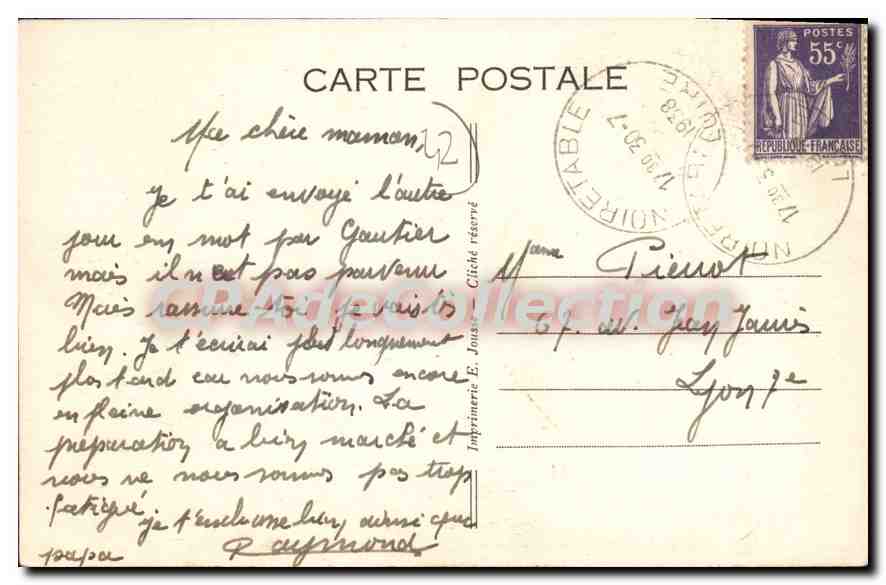 CARTE POSTALE
Ma chère maman,
42
Je t'ai envoyé l'autre
jour un mot par Gautier
mais il n'est pas parvenu
Mais rassure toi je vais très
bien. Je t'écrirai plus longuement
plus tard car nous sommes encore
en pleine organisation. La
preparation a bien marché et
nous ne nous sommes pas trop
fatigué.
je t'embrasse bien, ainsi que
papa
Raymond
Imprimerie E. Jousset Cliché réservé
POSTES
55c
REPUBLIQUE FRANÇAISE
NOIRETABLE LOIRE
17 30 30-7
1938
NOIRETABLE LOIRE
17 30
Mme Pierrot
67. av. Jean Jaurès
Lyon 7e
CPAdeCollection